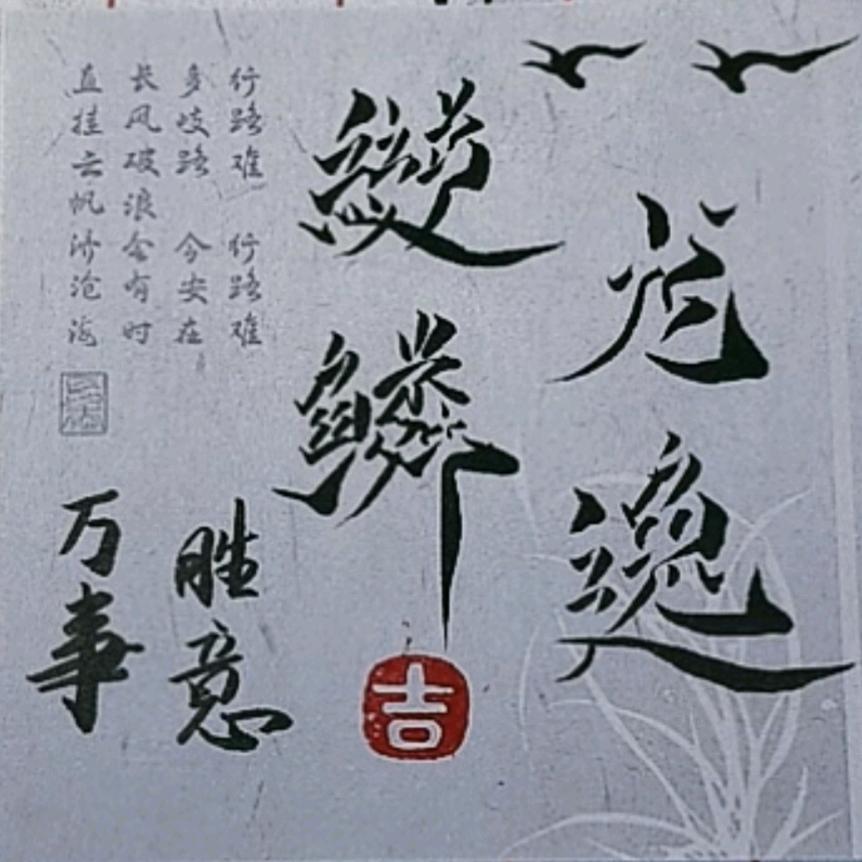 逸
變鱗
行路难 行路难
多歧路 今安在
长风破浪会有时
直挂云帆济沧海
万事
胜意
吉